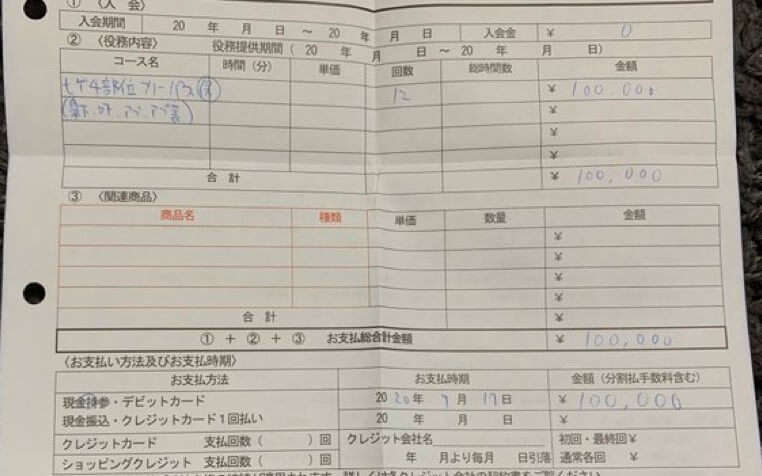 ① 〈入 会〉
入会期間 20 年 月 日 ～ 20 年 月 日 入会金 ¥ 0
② 〈役務内容〉 役務提供期間 ( 20 年 月 日 ～ 20 年 月 日)
コース名 時間(分) 単価 回数 総時間数 金額
ヒゲ4部位フリーパス 12 ¥ 100.000
¥
¥
¥
合 計 ¥ 100,000
③ 〈関連商品〉
商品名 種類 単価 数量 金額
¥
¥
¥
¥
合 計 ¥
① + ② + ③ お支払総合計金額 ¥ 100,000
〈お支払い方法及びお支払時期〉
お支払方法 お支払時期 金額 (分割払手数料含む)
現金持参・デビットカード 20 20年 7月 17日 ¥ 100,000
現金振込・クレジットカード1回払い 20 年 月 日 ¥
クレジットカード 支払回数 ( ) 回 クレジット会社名 初回・最終回¥
ショッピングクレジット 支払回数 ( ) 回 年 月より毎月 日引落 通常各回 ¥